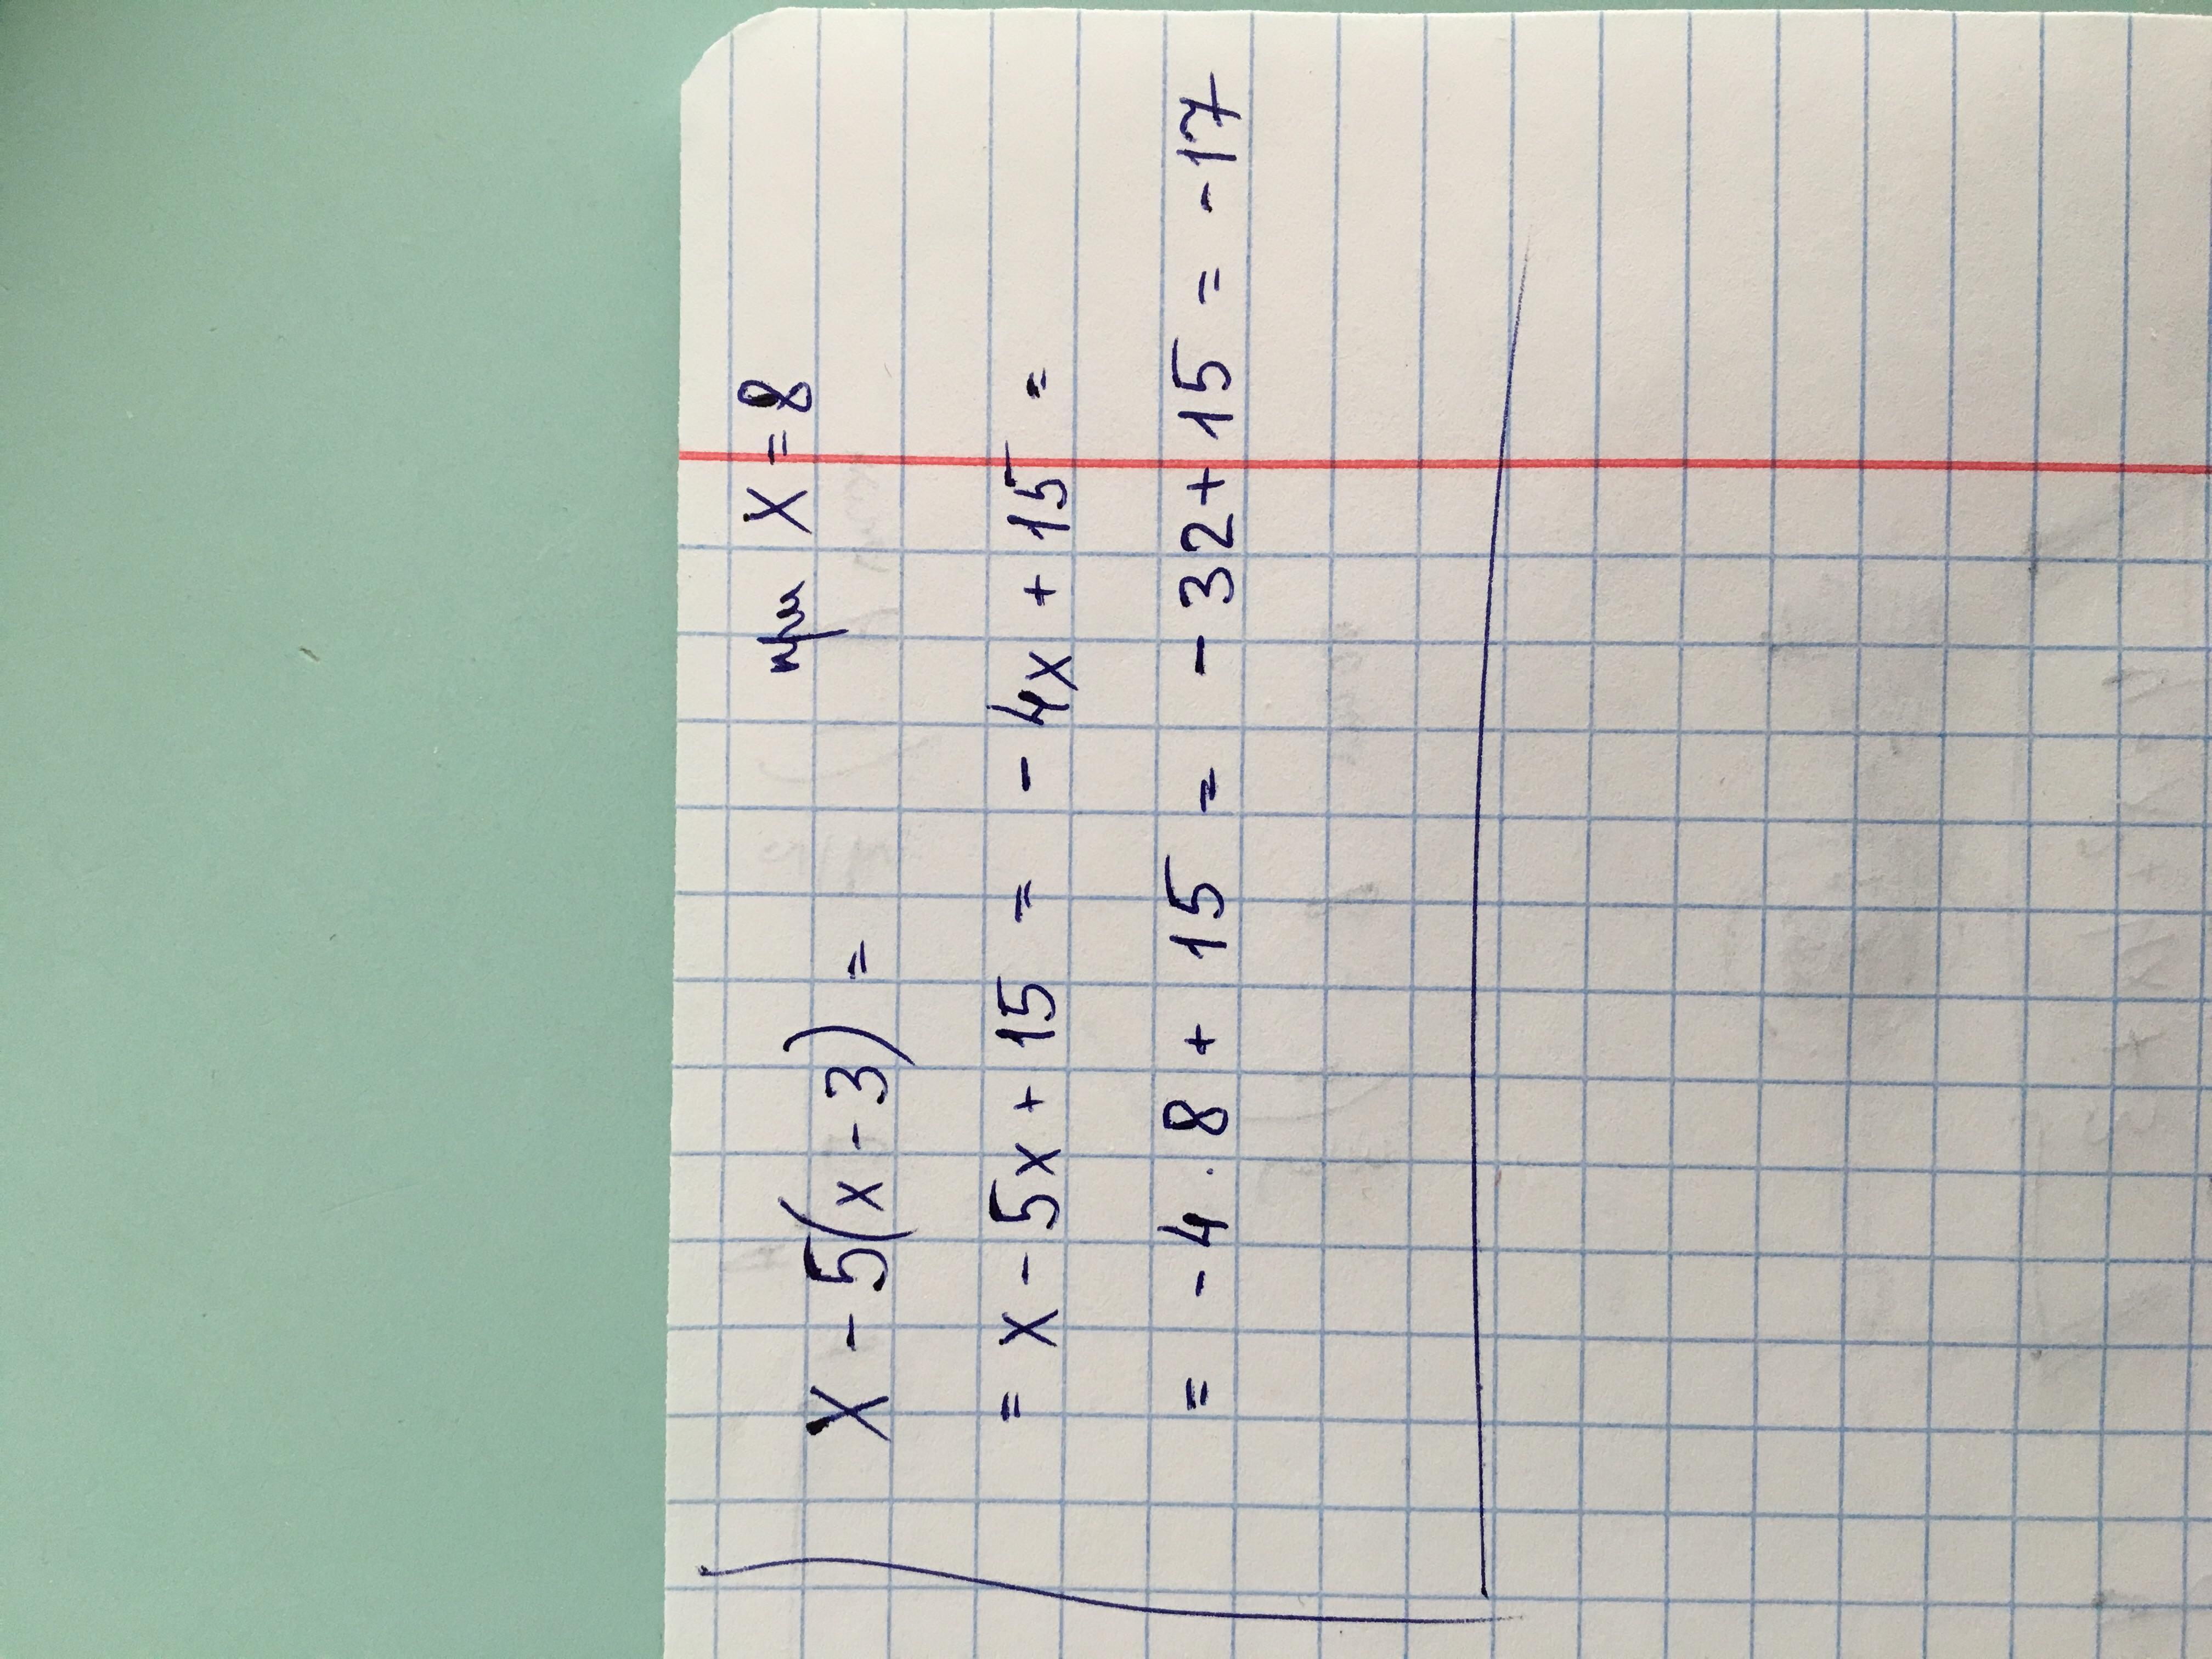 x - 5(x - 3) = при x = 8
= x - 5x + 15 = - 4x + 15 =
= - 4 . 8 + 15 = - 32 + 15 = - 17